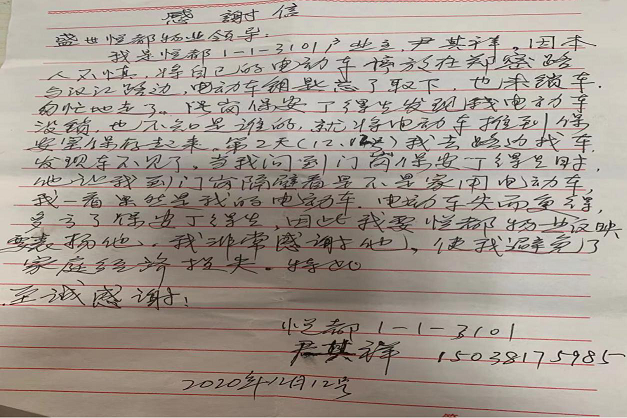 感谢信
盛世悦都物业领导:
我是悦都1-1-3101户业主,尹其祥,因本
人不慎,将自己的电动车停放在郑密路
与汉江路边,电动车钥匙忘了取下,也未锁车,
匆忙地走了。保安丁得生发现我电动车
没锁,也不知是谁的,就将电动车推到保
安室保存起来。第2天(12.)我去路边找车,
发现车不见了。当我问到门岗保安丁得生时,
他让我到门岗隔壁看是不是家用电动车,
我一看果然是我的电动车,电动车失而复得,
多亏了保安丁得生,因此我要悦都物业反映
要表扬他,我非常感谢他,使我避免了
家庭经济损失。特此
至诚感谢!
悦都1-1-3101
尹其祥 15038175985
2020年12月12号